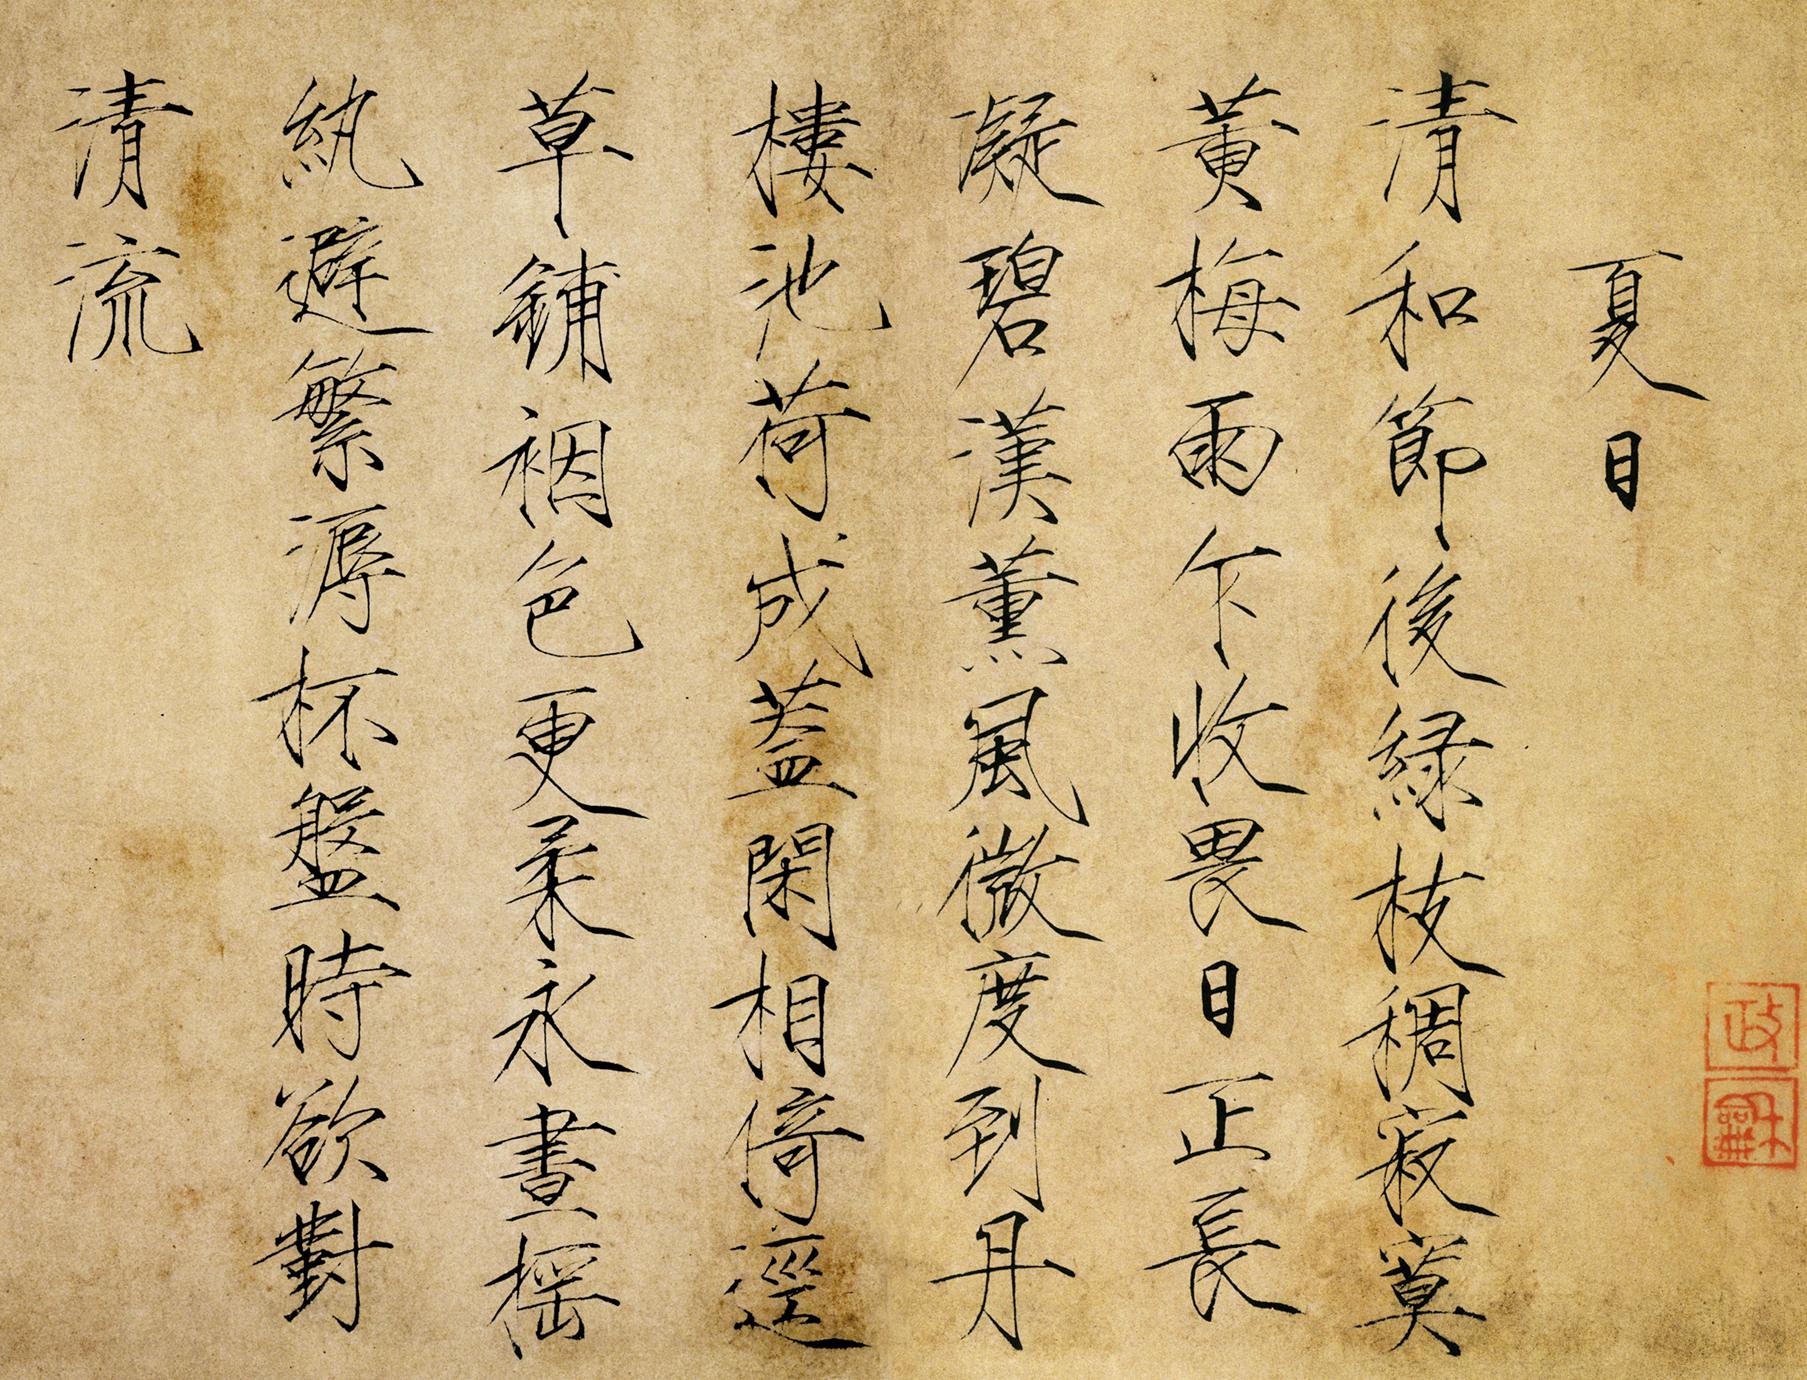 夏日
清和節後緑枝稠寂寞
黄梅雨乍收畏日正長
凝碧漢薫風微度到丹
樓池荷成蓋閑相倚逕
草鋪裀色更柔永晝摇
紈避繁溽杯盤時欲對
清流
政龢